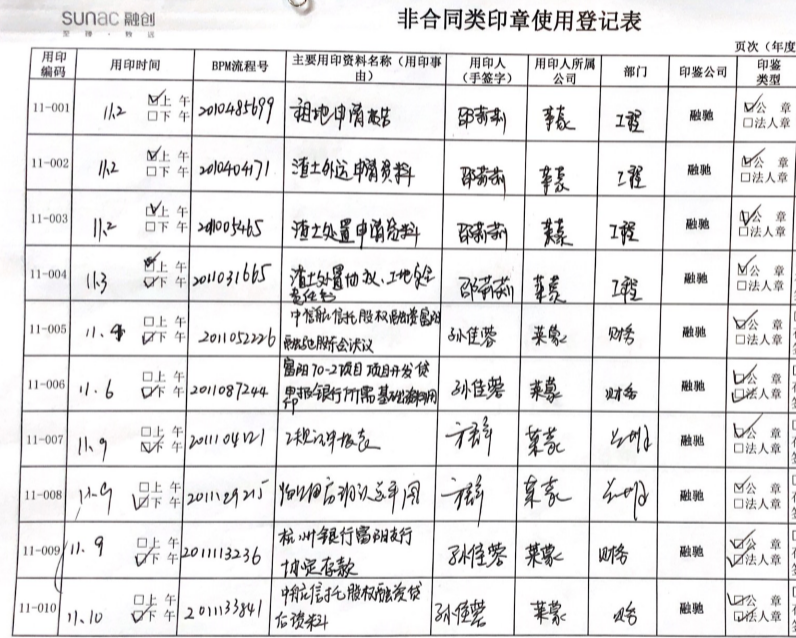 sunac 融创
至 臻 · 致 远
非合同类印章使用登记表
页次（年度
用印编码 用印时间 BPM流程号 主要用印资料名称（用印事由） 用印人（手签字） 用印人所属公司 部门 印鉴公司 印鉴类型
11-001 11.2 ☑上 午 □下 午 2010485699 租地申请报告 邵莉莉 莱蒙 工程 融驰 ☑公 章 □法人章
11-002 11.2 ☑上 午 □下 午 2010404171 渣土外运申请资料 邵莉莉 莱蒙 工程 融驰 ☑公 章 □法人章
11-003 11.2 ☑上 午 □下 午 201005465 渣土处置申请资料 邵莉莉 莱蒙 工程 融驰 ☑公 章 □法人章
11-004 11.3 上 午 ☑下 午 2011031665 渣土处置协议、工地安全责任书 邵莉莉 莱蒙 工程 融驰 ☑公 章 □法人章
11-005 11.4 □上 午 ☑下 午 2011052226 中信航信托股权融资富阳 股东会决议 孙佳蓉 莱蒙 财务 融驰 ☑公 章 □法人章
11-006 11.6 □上 午 ☑下 午 2011087244 富阳70-2项目项目开发贷 报银行所需基础资料用印 孙佳蓉 莱蒙 财务 融驰 ☑公 章 ☑法人章
11-007 11.9 □上 午 ☑下 午 2011104121 莱蒙 融驰 ☑公 章 □法人章
11-008 11.9 □上 午 ☑下 午 2011109215 莱蒙 融驰 ☑公 章 □法人章
11-009 11.9 □上 午 ☑下 午 2011113236 杭州银行富阳支行 协定存款 孙佳蓉 莱蒙 财务 融驰 ☑公 章 ☑法人章
11-010 11.10 □上 午 ☑下 午 2011133841 中航信托股权融资贷后资料 孙佳蓉 莱蒙 财务 融驰 ☑公 章 ☑法人章